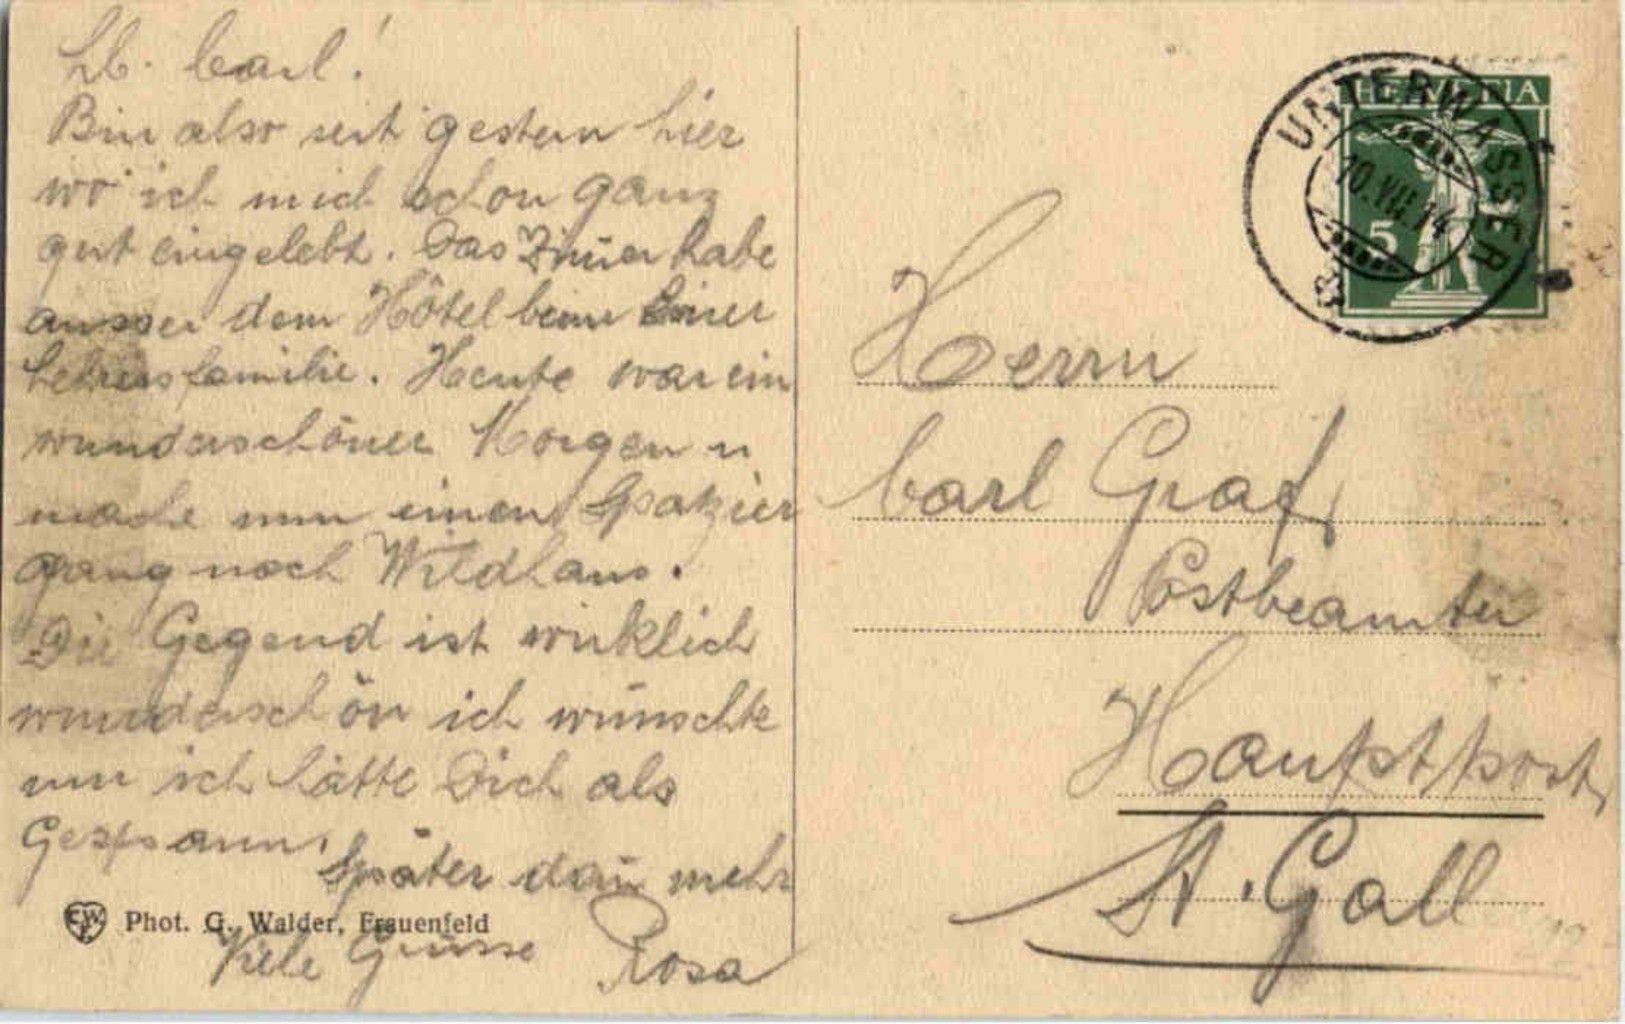 Lb. Carl!
Bin also seit gestern hier
wo ich mich schon ganz
gut eingelebt. Das Zim̄er habe
ausser dem Hôtel beim einer
Lehrersfamilie. Heute war ein
wunderschöner Morgen u
mache nun einen Spazier
gang nach Wildhaus.
Die Gegend ist wirklich
wunderschön ich wünschte
nur ich hätte Dich als
Gespann.
Später dan̄ mehr
Viele Grüsse Rosa
EWF
Phot. G. Walder, Frauenfeld
HELVETIA
5
UNTERWASSER
10.VIII.14
Herrn
Carl Graf,
Postbeamter
Hauptpost,
St. Gall